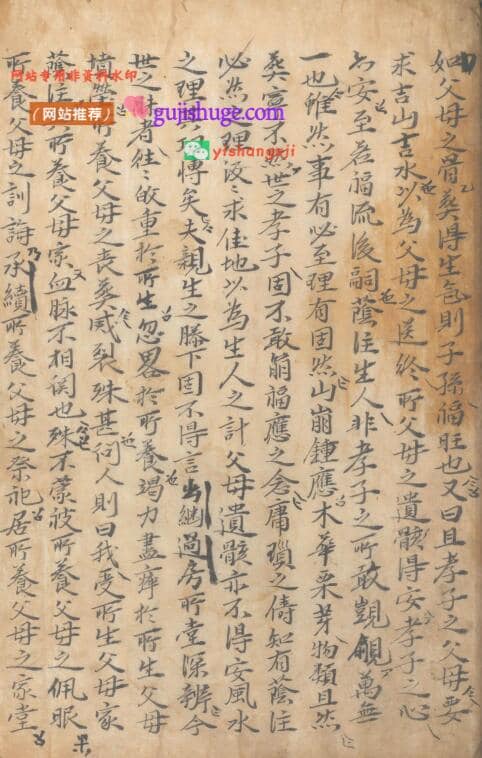 如父母之骨葬得生氣則子孫福旺也又曰且孝子之父母要
求吉山吉水以為父母之送終所父母之遺骸得安孝子之心
亦安至若福流後嗣蔭注生人非孝子之所敢覬覦萬無
一也雖然事有必至理有固然山崩鍾應木華栗芽物類且然
葬豈不然世之孝子固不敢萌福應之念庸瑣之儔知有蔭注
必然之理汲汲求佳地以為生人之計父母遺骸亦不得安風水
之理悖矣夫親生之膝下固不得言出繼過房所當深辨今
世之時者往往皆重於所生忽略於所養竭力盡瘁於所生父母
墳塋所養父母之喪葬滅裂殊甚何人則曰我受所生父母家
蔭注所養父母家血脉不相関也殊不蒙被所養父母之佩服
所養父母之訓誨承續所養父母之祭祀居所養父母之家堂
网站专用非资料水印
（网站推荐）
gujishuge.com
yishangji